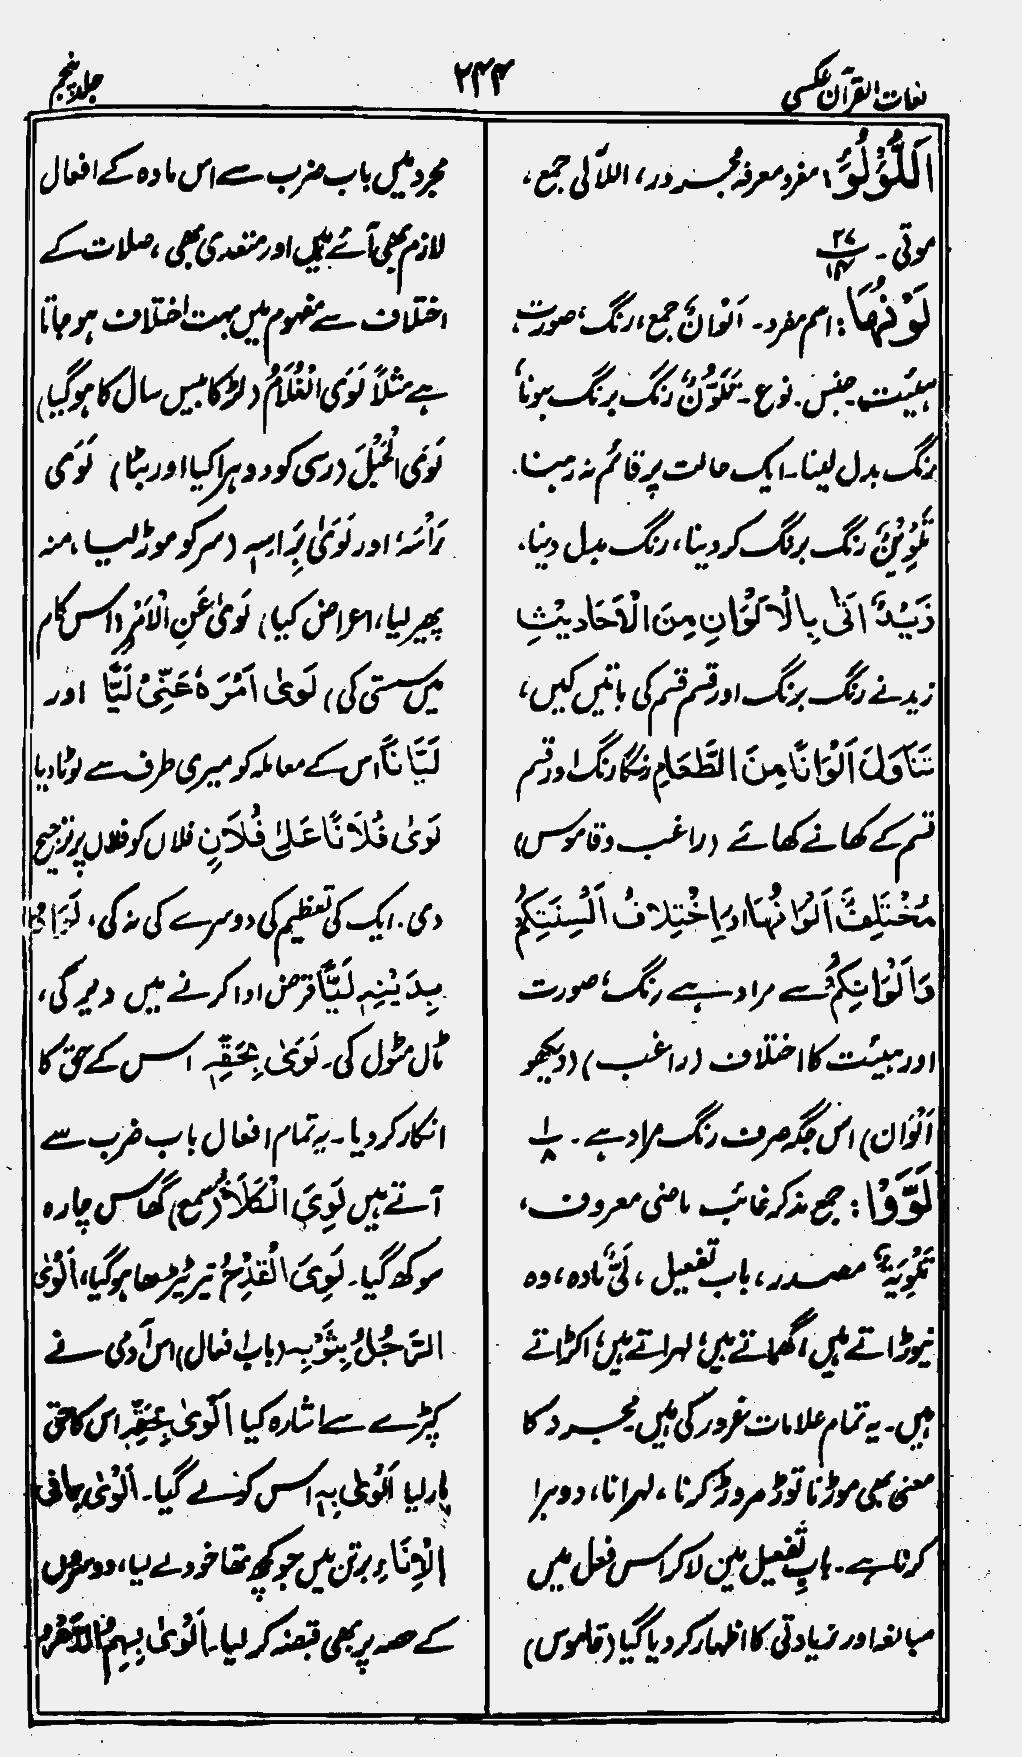 لغات القرآن عکسی
۲۴۴
جلد پنجم
اَللُّؤْلُؤُ: مفرد معرفہ مجرور، اللآلی جمع،
موتی۔ ۲۷/۱۴
لَوْنُهَا: اسم مفرد۔ اَلْوَانٌ جمع، رنگ، صورت،
ہیئت، جنس۔ نوع۔ تَلَوُّنٌ رنگ برنگ ہونا
رنگ بدل لینا۔ ایک حالت پر قائم نہ رہنا۔
تَلْوِیْنٌ رنگ برنگ کر دینا، رنگ بدل دینا۔
زَیْدٌ اَتٰی بِالْاَلْوَانِ مِنَ الْاَحَادِیْثِ
زید نے رنگ برنگ اور قسم قسم کی باتیں کیں،
تَنَاوَلَ اَلْوَانًا مِنَ الطَّعَامِ رنگا رنگ اور قسم
قسم کے کھانے کھائے (راغب و قاموس)
مُخْتَلِفٌ اَلْوَانُهَا اور اِخْتِلَافُ اَلْسِنَتِكُمْ
وَاَلْوَانِكُمْ سے مراد ہے رنگ، صورت
اور ہیئت کا اختلاف (راغب) (دیکھو
اَلْوَان) اس جگہ صرف رنگ مراد ہے۔ ۱/۸
لَوَّوْا: جمع مذکر غائب ماضی معروف،
تَلْوِیَۃٌ مصدر، باب تفعیل، لَیٌّ مادہ، وہ
نیوڑاتے ہیں، گھماتے ہیں، لہراتے ہیں، اکڑاتے
ہیں۔ یہ تمام علامات غرور کی ہیں۔ مجرد کا
معنی بھی موڑنا توڑ مروڑ کرنا، لہرانا، دوہرا
کرنا ہے۔ بابِ تفعیل میں لا کر اس فعل میں
مبالغہ اور زیادتی کا اظہار کر دیا گیا (قاموس)
مجرد میں باب ضرب سے اس مادہ کے افعال
لازم بھی آئے ہیں اور متعدی بھی، صلات کے
اختلاف سے مفہوم میں بہت اختلاف ہو جاتا
ہے مثلاً لَوَی الْغُلَامُ (لڑکا بیس سال کا ہو گیا)
لَوَی الْحَبْلَ (رسی کو دوہرا کیا اور بٹا) لَوَی
رَأْسَہٗ اور لَوٰی بِرَاسِہٖ (سر کو موڑ لیا، منہ
پھیر لیا، اعراض کیا) لَوٰی عَنِ الْاَمْرِ (اس کام
میں سستی کی) لَوٰی اَمْرَہٗ عَنِّیْ لَیًّا اور
لَیَّانًا اس کے معاملہ کو میری طرف سے لوٹا دیا
لَوٰی فُلَانًا عَلٰی فُلَانٍ فلاں کو فلاں پر ترجیح
دی۔ ایک کی تعظیم کی دوسرے کی نہ کی،
بِدَیْنِہٖ لَیًّا قرض ادا کرنے میں دیر کی،
ٹال مٹول کی۔ لَوٰی بِحَقِّہٖ اس کے حق کا
انکار کر دیا۔ یہ تمام افعال باب ضرب سے
آتے ہیں لَوِیَ الْکَلَأُ (سمع) گھاس چارہ
سوکھ گیا۔ لَوِیَ الْقِدْحُ تیر ٹیڑھا ہو گیا، اَلْوٰی
الرَّجُلُ بِثَوْبِہٖ (باب افعال) اس آدمی نے
کپڑے سے اشارہ کیا اَلْوٰی بِحَقِّہٖ اس کا حق
مار لیا اَلْوٰی بِہٖ اس کو لے گیا۔ اَلْوٰی بِمَا فِی
الْاِنَاءِ برتن میں جو کچھ تھا خود لے لیا، دوسروں
کے حصہ پر بھی قبضہ کر لیا۔ اَلْوٰی بِہِمُ الدَّہْرُ